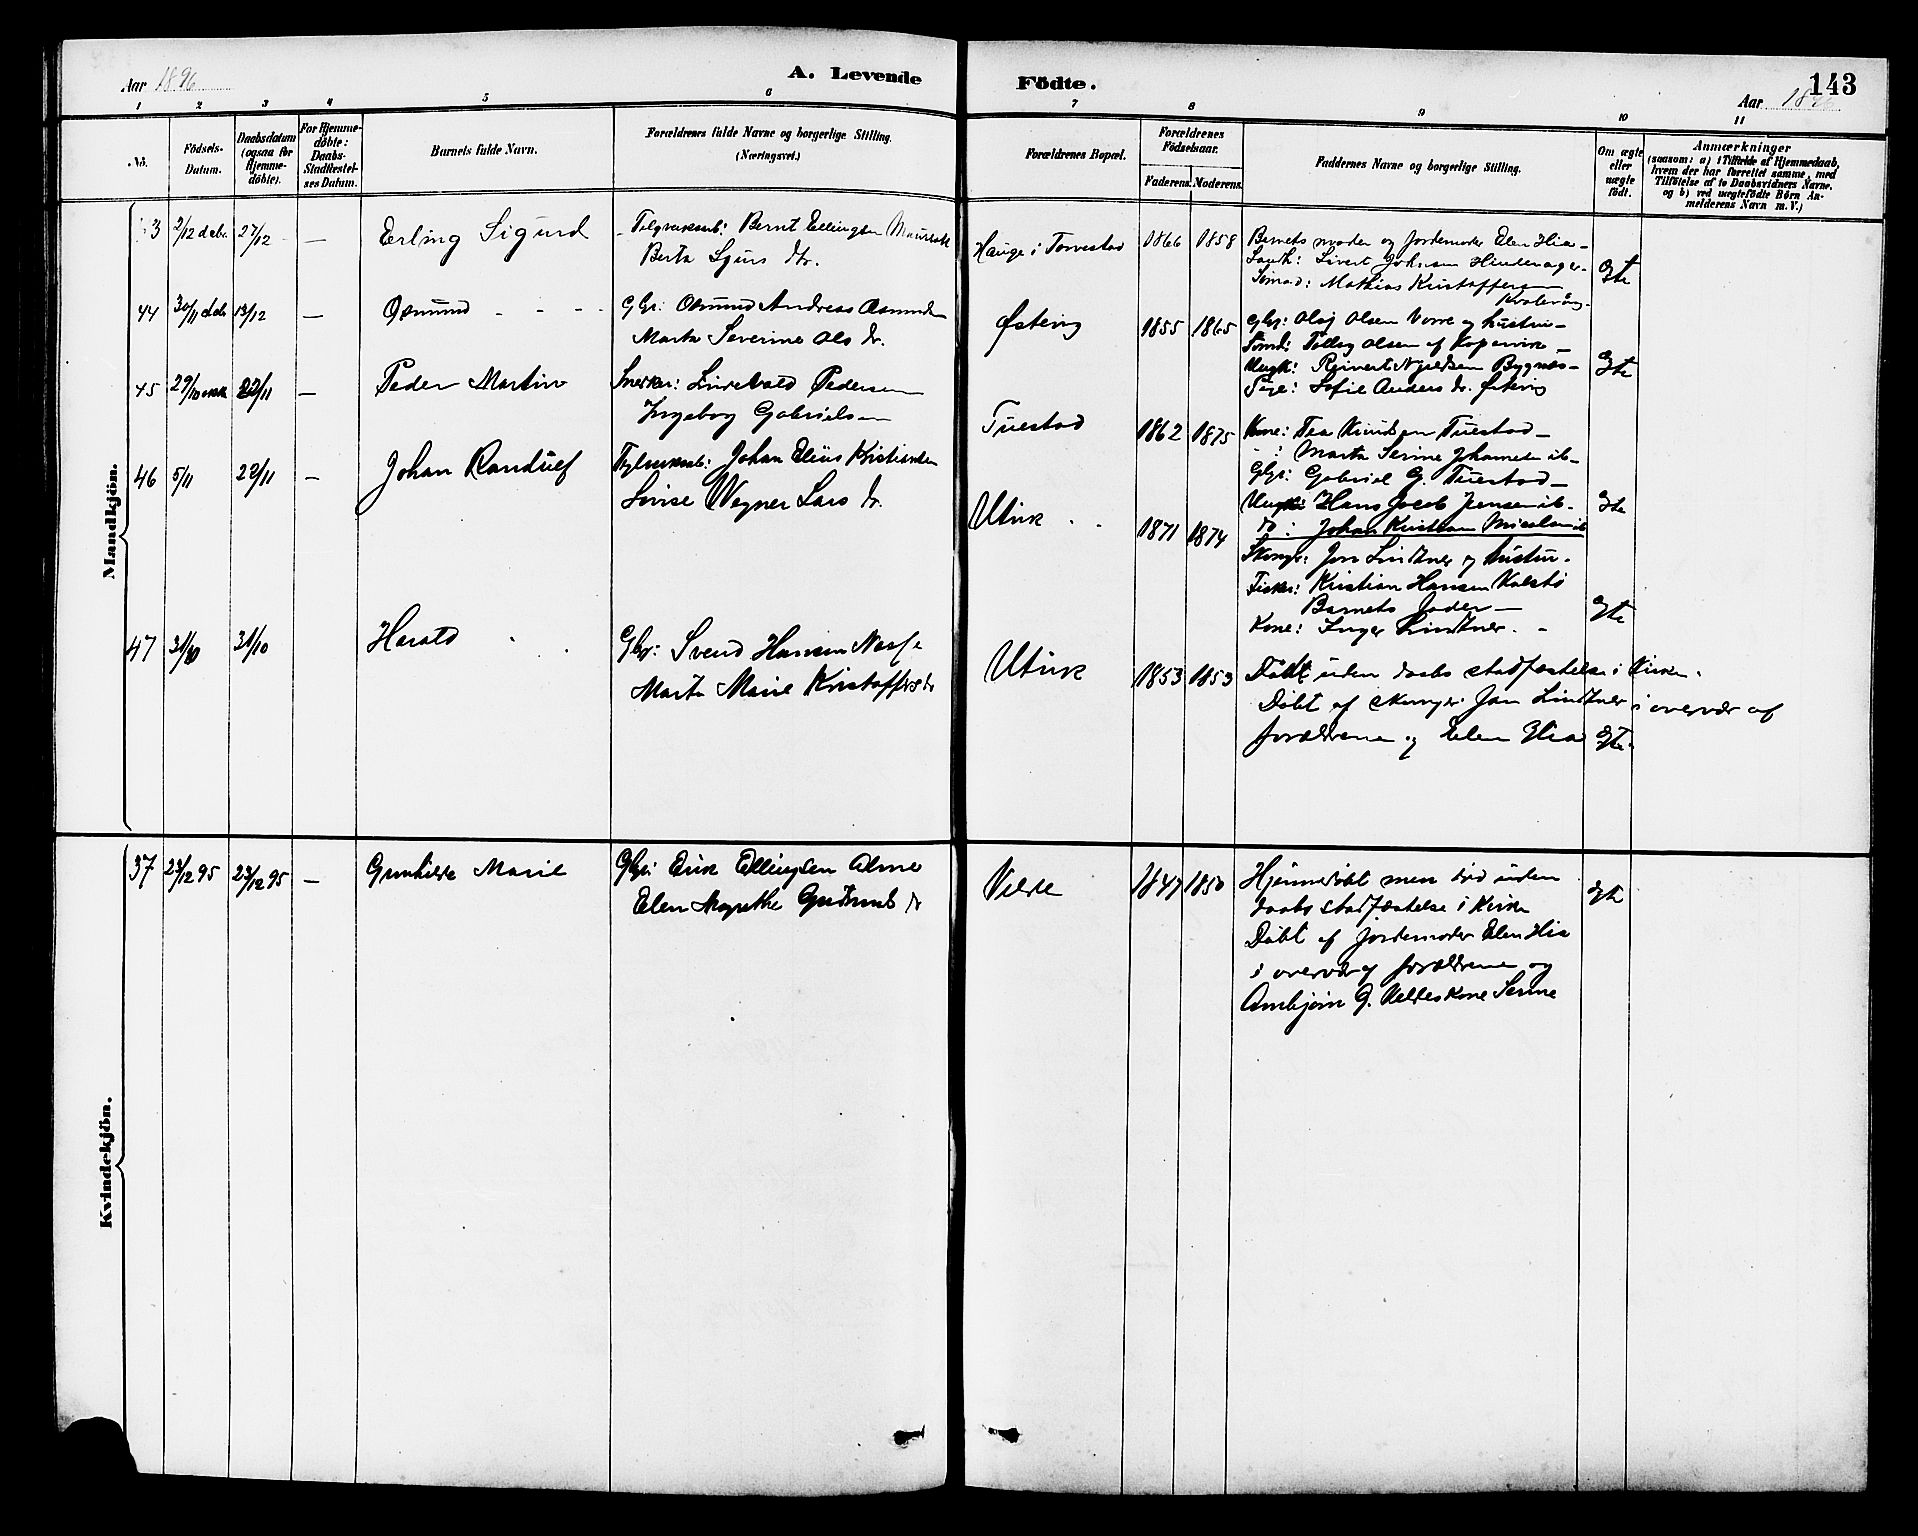 Aar 1896
A. Levende
Födte.
143
Aar 1896
1 2 3 4 5 6 7 8 9 10 11
No.
Födsels-
Datum.
Daabsdatum
(ogsaa for
Hjemme-
döbte).
For Hjemme-
döbte:
Daabs-
Stadfæstel-
ses Datum.
Barnets fulde Navn.
Forældrenes fulde Navne og borgerlige Stilling.
(Næringsvei.)
Forældrenes Bopæl.
Forældrenes
Födselsaar.
Faderens. Moderens.
Faddernes Navne og borgerlige Stilling.
Om ægte
eller
uægte
født.
Anmærkninger
(saasom: a) i Tilfælde af Hjemmedaab,
hvem der har forrettet samme, med
Tilföielse af to Daabsvidners Navne,
og b) ved uegtefödte Börn An-
melderens Navn m. V.)
Mandkjön.
3 2/12 27/12 — Erling Sigurd
Bernt Ellingsen
Berta Sjurs dtr.
Hauge i Torvestad 1866 1858
Barnets moder og Jordemoder Elen Hia —
Sivert Johnsen Hinderager —
Mathias Kristoffersen
Egte
44 30/11 13/12 — Osmund
Gbr: Osmund Andreas Asmundsen
Marta Severine Ols dr.
Østevig 1855 1865
Gbr: Olaf Olsen Vorre og hustru —
Tollag Olsen af Kopervik —
Ungk: Reinert Bygnes —
Pige: Sofie Anders dr. Østevig
Egte
45 29/10 22/11 — Peder Martin
Snekker: Pedersen
Ingeborg Gabrielsen
Tuestad 1862 1875
Kone: Tea Knudsen Tuestad —
Marta Serine Johannesen ib —
Gbr: Gabriel G. Tuestad —
Ungk: Hans Jacob Jensen ib.
do: Johan Kristian
Egte
46 5/11 22/11 — Johan Randulf
Johan Elius Kristiansen
Lovise Wegner Lars dr.
Utvik 1871 1874
Skomgr: Jon Lindtner og hustru.
Fisker: Kristian Hansen Kalstø
Barnets fader —
Kone: Inger Lindtner. —
Egte
47 31/10 31/10 Harald
Gbr: Svend Hansen
Marta Marie Kristoffers dr
Utvik 1853 1853
Døbt uden daabs stadfæstelse i Kirken.
Døbt af skomgr. Jan Lindtner i overvær af
forældrene og Elen Hia
Egte.
Kvindekjön.
37 23/12 95 23/12 95 — Gunhilde Marie
Gbr: Erik Ellingsen
Elen Margrethe Gudmunds dr
Velde 1847 1850
Hjemmedøbt men død uden
daabs stadfæstelse i Kirke
Døbt af Jordemoder Elen Hia
i overvær af forældrene og
Arnbjørn G. Veldes Kone Serine
Egte